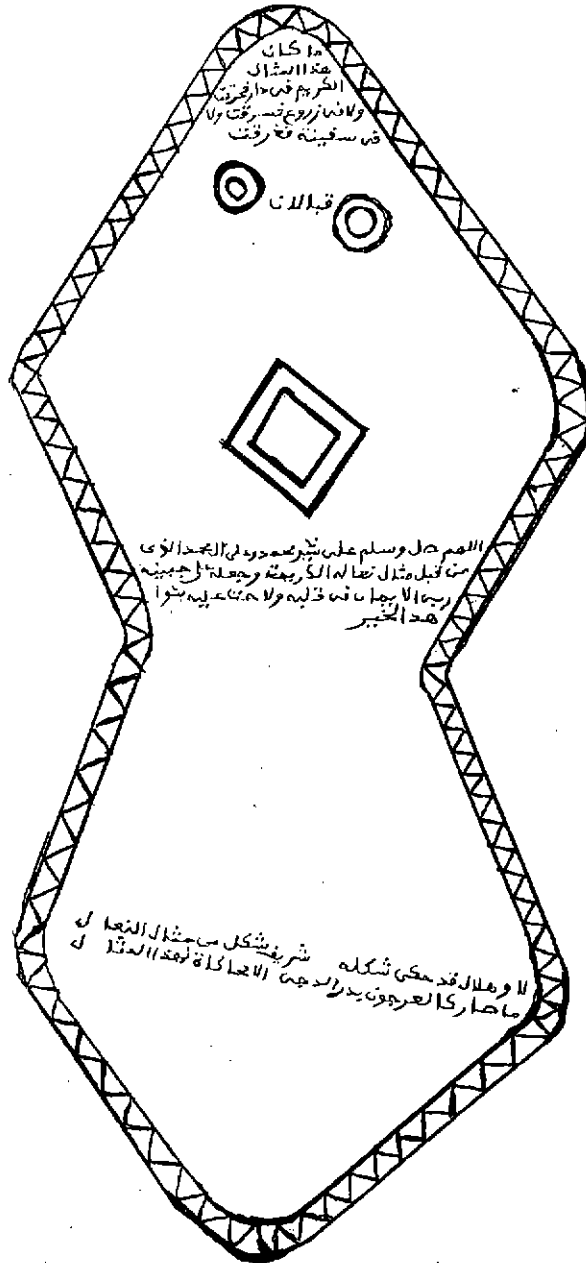 ما كان
هذا المثال
الكريم في دار فحرقت
ولا في زروع فسرقت ولا
في سفينة فغرقت
قبالان
اللهم صل وسلم على محمد الذي
من قبل مثال نعاله الكريمة وجعله جبينه
الايمان في قلبه
هذ الخبر
لا وهلال قد حكى شكله شريف شكل من مثال النعال
ما صار كالعرجون بدر الدجى الا محاكاة لهذا المثال